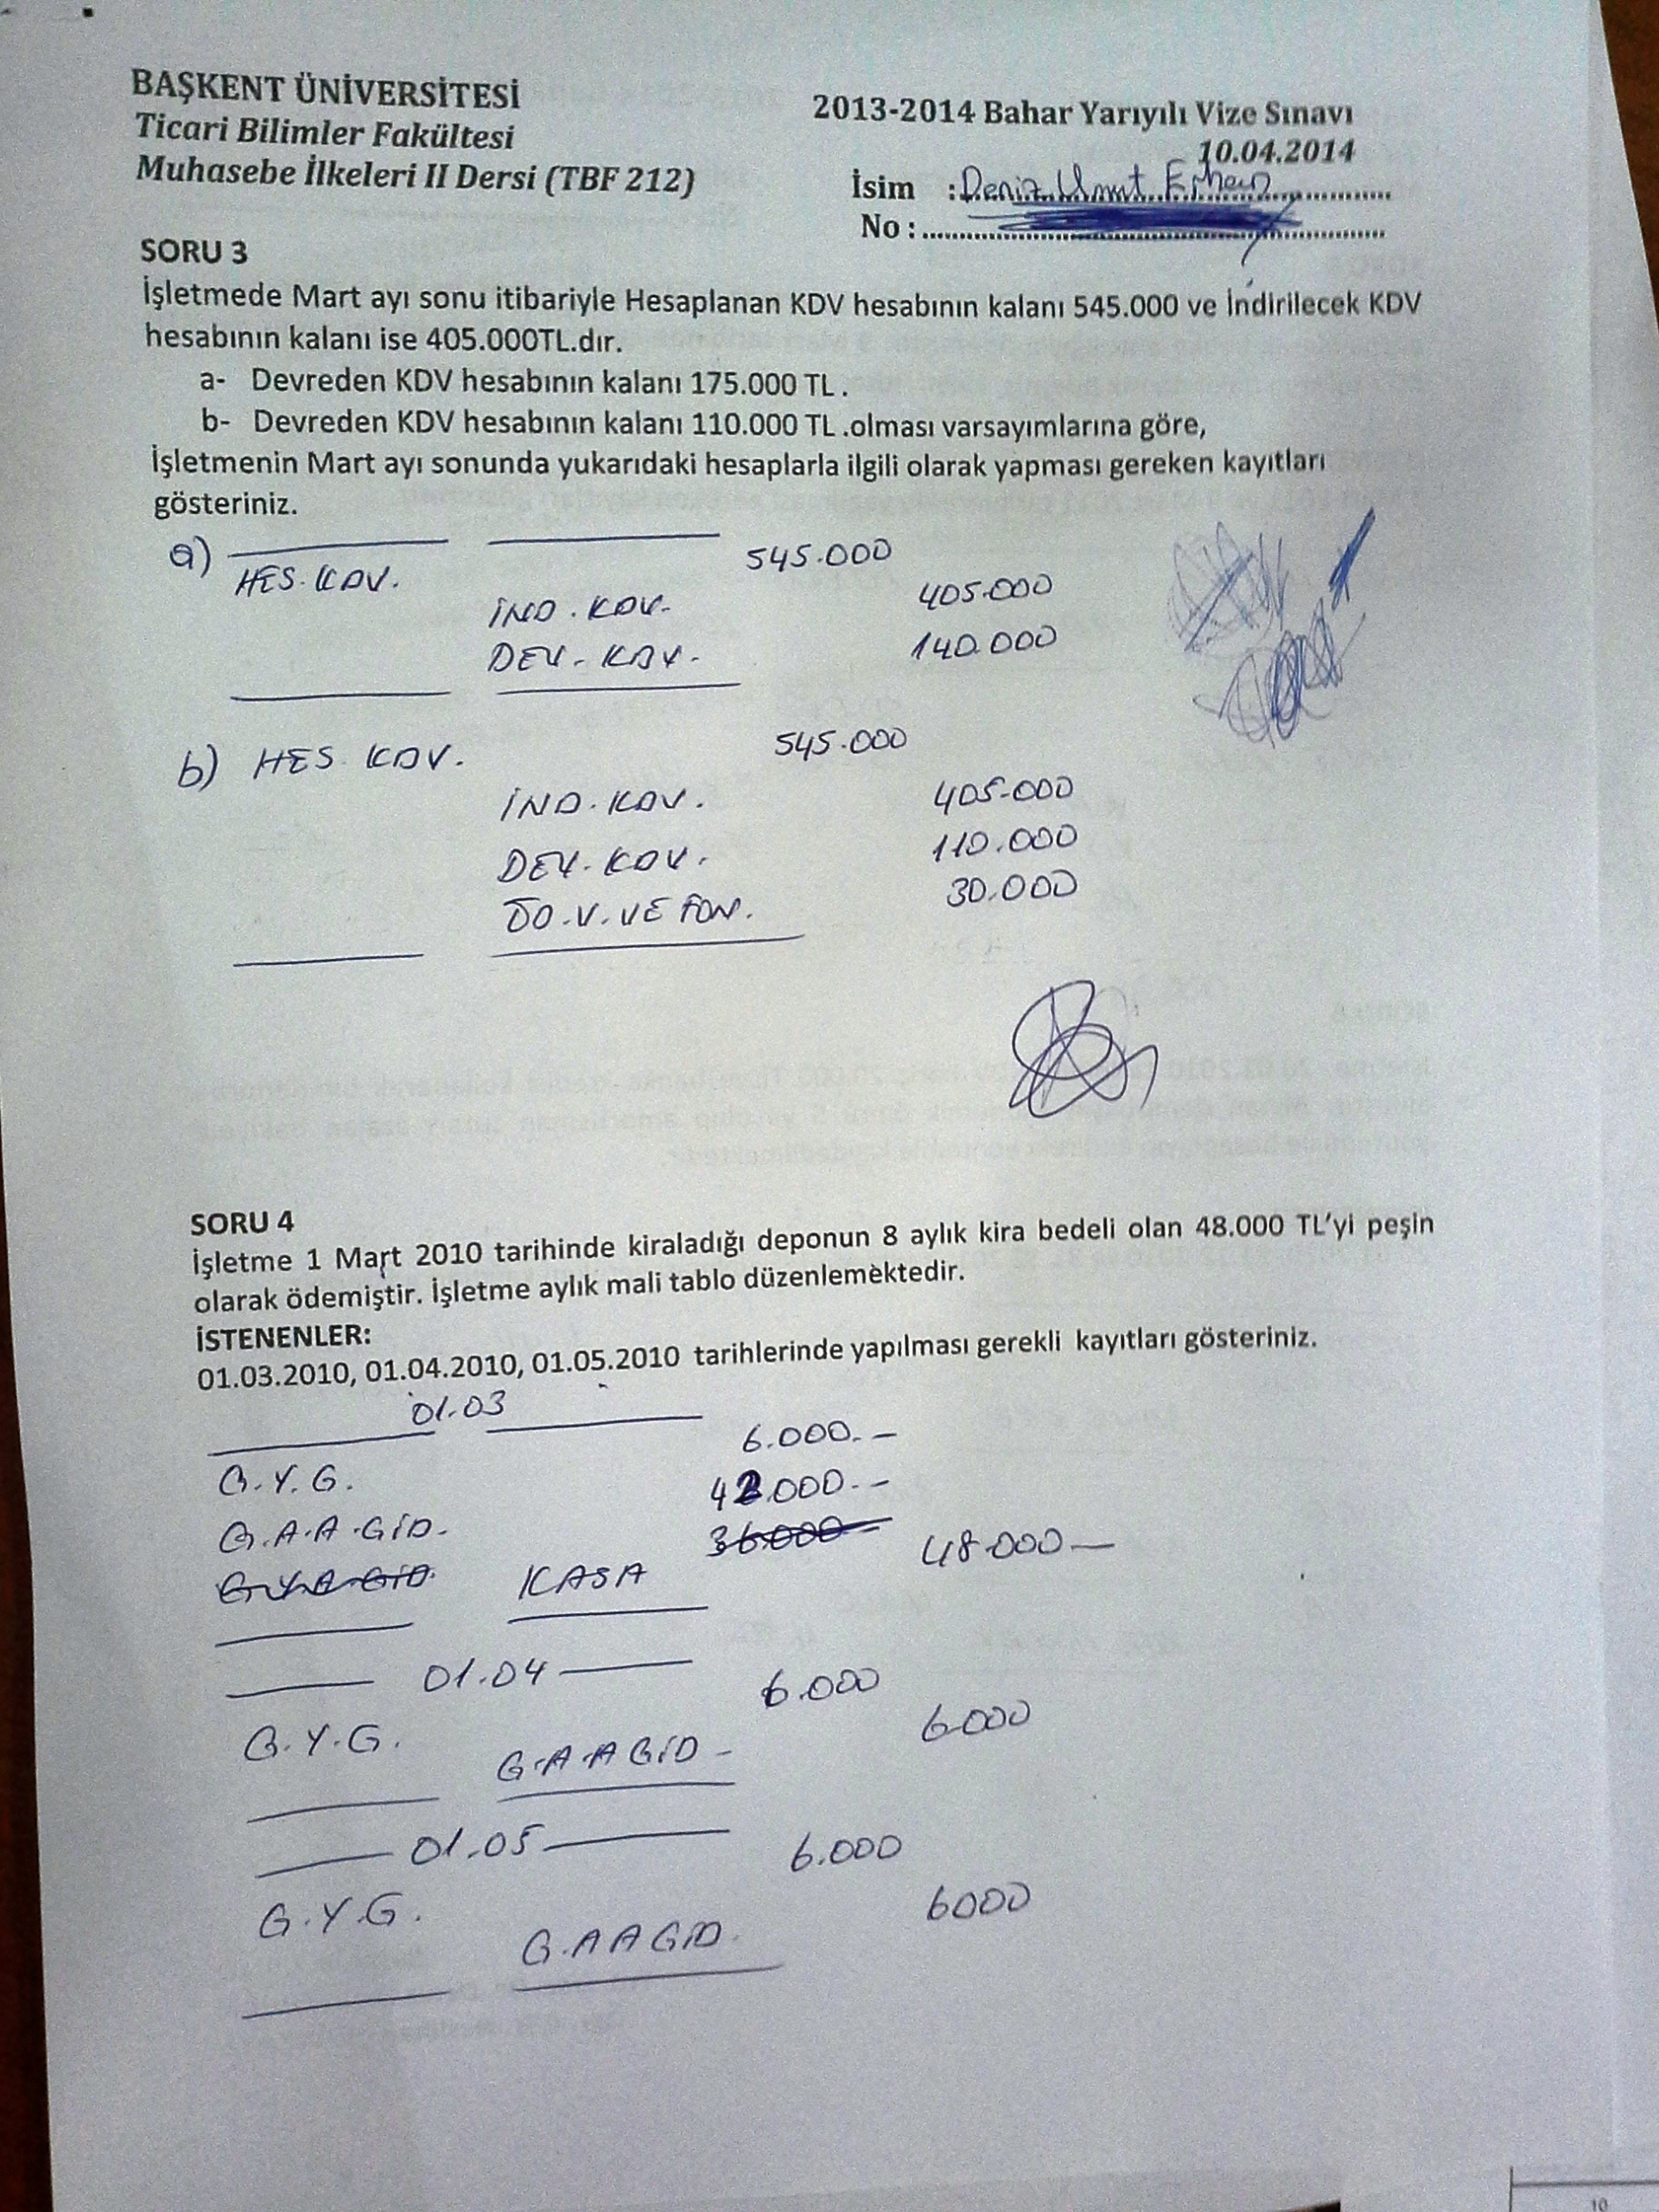 BAŞKENT ÜNİVERSİTESİ
Ticari Bilimler Fakültesi
Muhasebe İlkeleri II Dersi (TBF 212)
2013-2014 Bahar Yarıyılı Vize Sınavı
10.04.2014
İsim : Deniz Umut Erhan
No :
SORU 3
İşletmede Mart ayı sonu itibariyle Hesaplanan KDV hesabının kalanı 545.000 ve İndirilecek KDV
hesabının kalanı ise 405.000TL.dır.
a- Devreden KDV hesabının kalanı 175.000 TL.
b- Devreden KDV hesabının kalanı 110.000 TL .olması varsayımlarına göre,
İşletmenin Mart ayı sonunda yukarıdaki hesaplarla ilgili olarak yapması gereken kayıtları
gösteriniz.
a) HES. KDV. 545.000
İND. KDV. 405.000
DEV. KDV. 140.000
b) HES KDV. 545.000
İND. KDV. 405.000
DEV. KDV. 110.000
ÖD.V.VE FON. 30.000
SORU 4
İşletme 1 Mart 2010 tarihinde kiraladığı deponun 8 aylık kira bedeli olan 48.000 TL'yi peşin
olarak ödemiştir. İşletme aylık mali tablo düzenlemektedir.
İSTENENLER:
01.03.2010, 01.04.2010, 01.05.2010 tarihlerinde yapılması gerekli kayıtları gösteriniz.
01.03
G.Y.G. 6.000.-
G.A.A.GİD. 42.000.-
G.Y.A.GİD. 36.000
KASA 48.000-
01.04
G.Y.G. 6.000
G.A.A GİD- 6.000
01.05
G.Y.G. 6.000
G.A A GİD. 6000
10